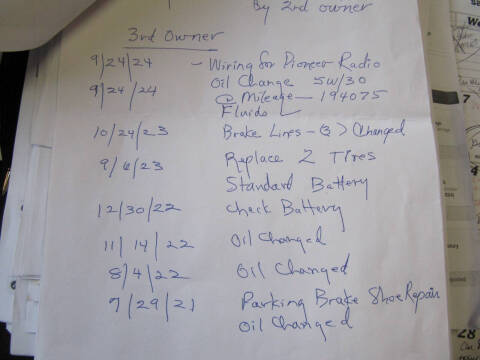 By 2nd owner
3rd Owner
9/24/24 - Wiring for Pioneer Radio
9/24/24 Oil Change 5W/30
@ Mileage — 194075
Fluids
10/24/23 Brake Lines - 3 > Changed
9/6/23 Replace 2 Tires
Standard Battery
12/30/22 Check Battery
11/14/22 Oil Changed
8/4/22 Oil Changed
7/29/21 Parking Brake Shoe Repair
Oil Changed
28